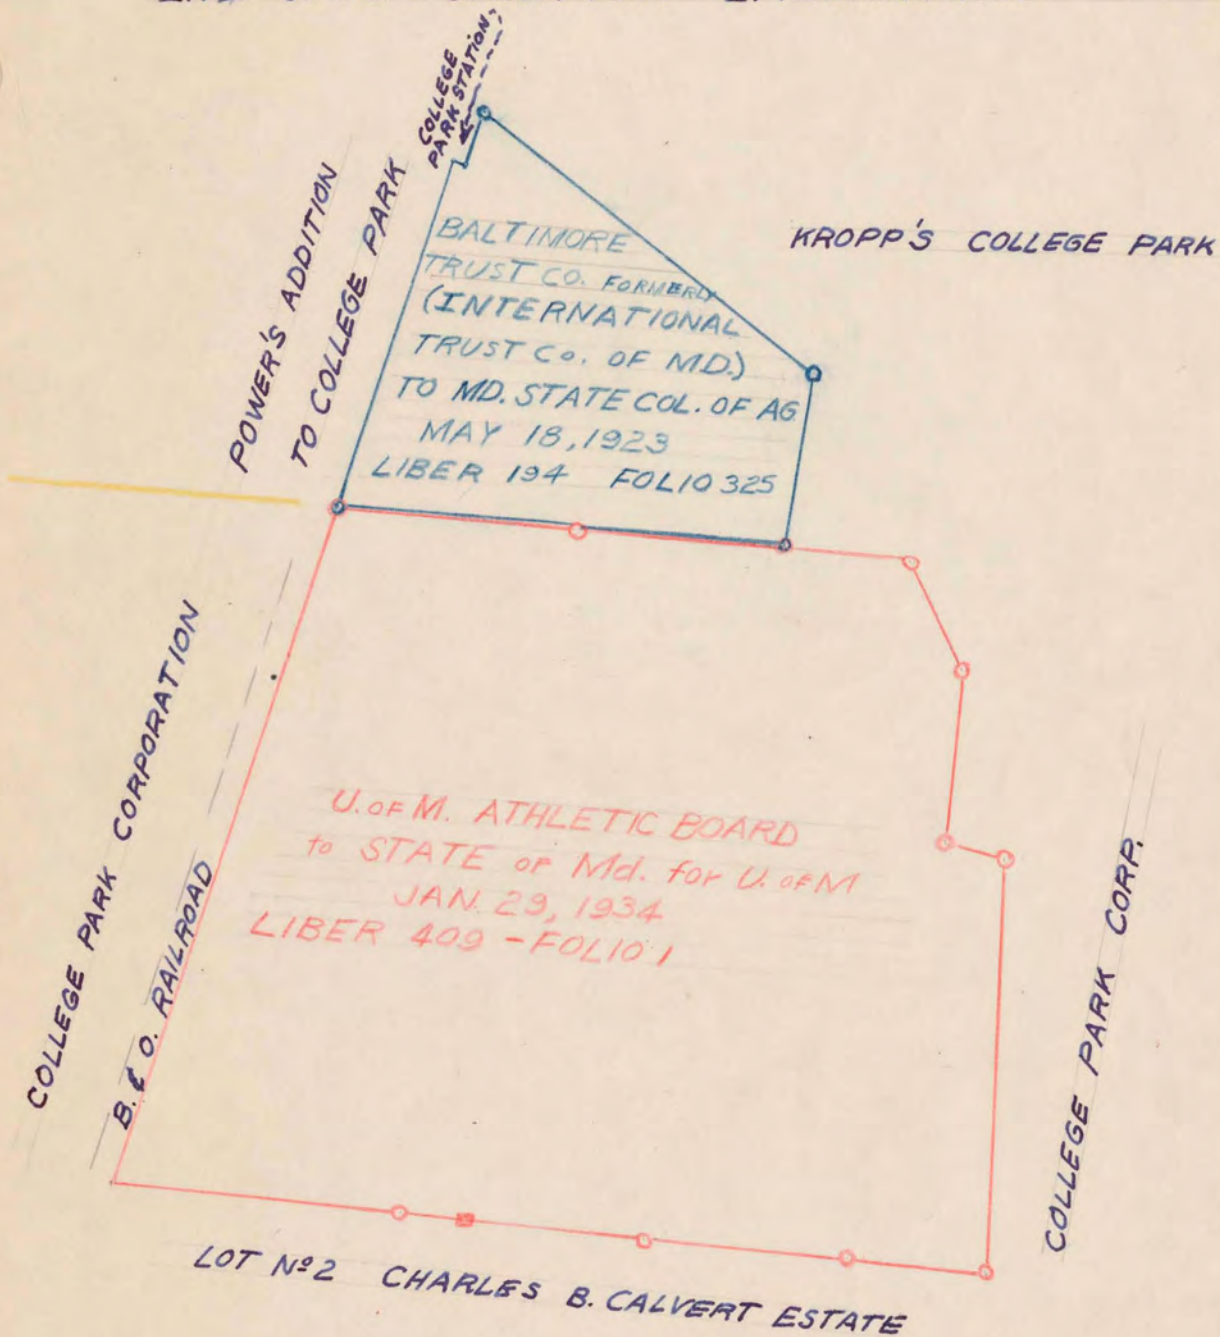 COLLEGE
PARK STATION
POWER'S ADDITION
TO COLLEGE PARK
KROPP'S COLLEGE PARK
BALTIMORE
TRUST CO. FORMERLY
(INTERNATIONAL
TRUST Co. OF MD.)
TO MD. STATE COL. OF AG
MAY 18, 1923
LIBER 194 FOLIO 325
COLLEGE PARK CORPORATION
B. & O. RAILROAD
U. OF M. ATHLETIC BOARD
to STATE OF Md. for U. OF M
JAN. 29, 1934
LIBER 409 - FOLIO 1
COLLEGE PARK CORP.
LOT Nº 2 CHARLES B. CALVERT ESTATE